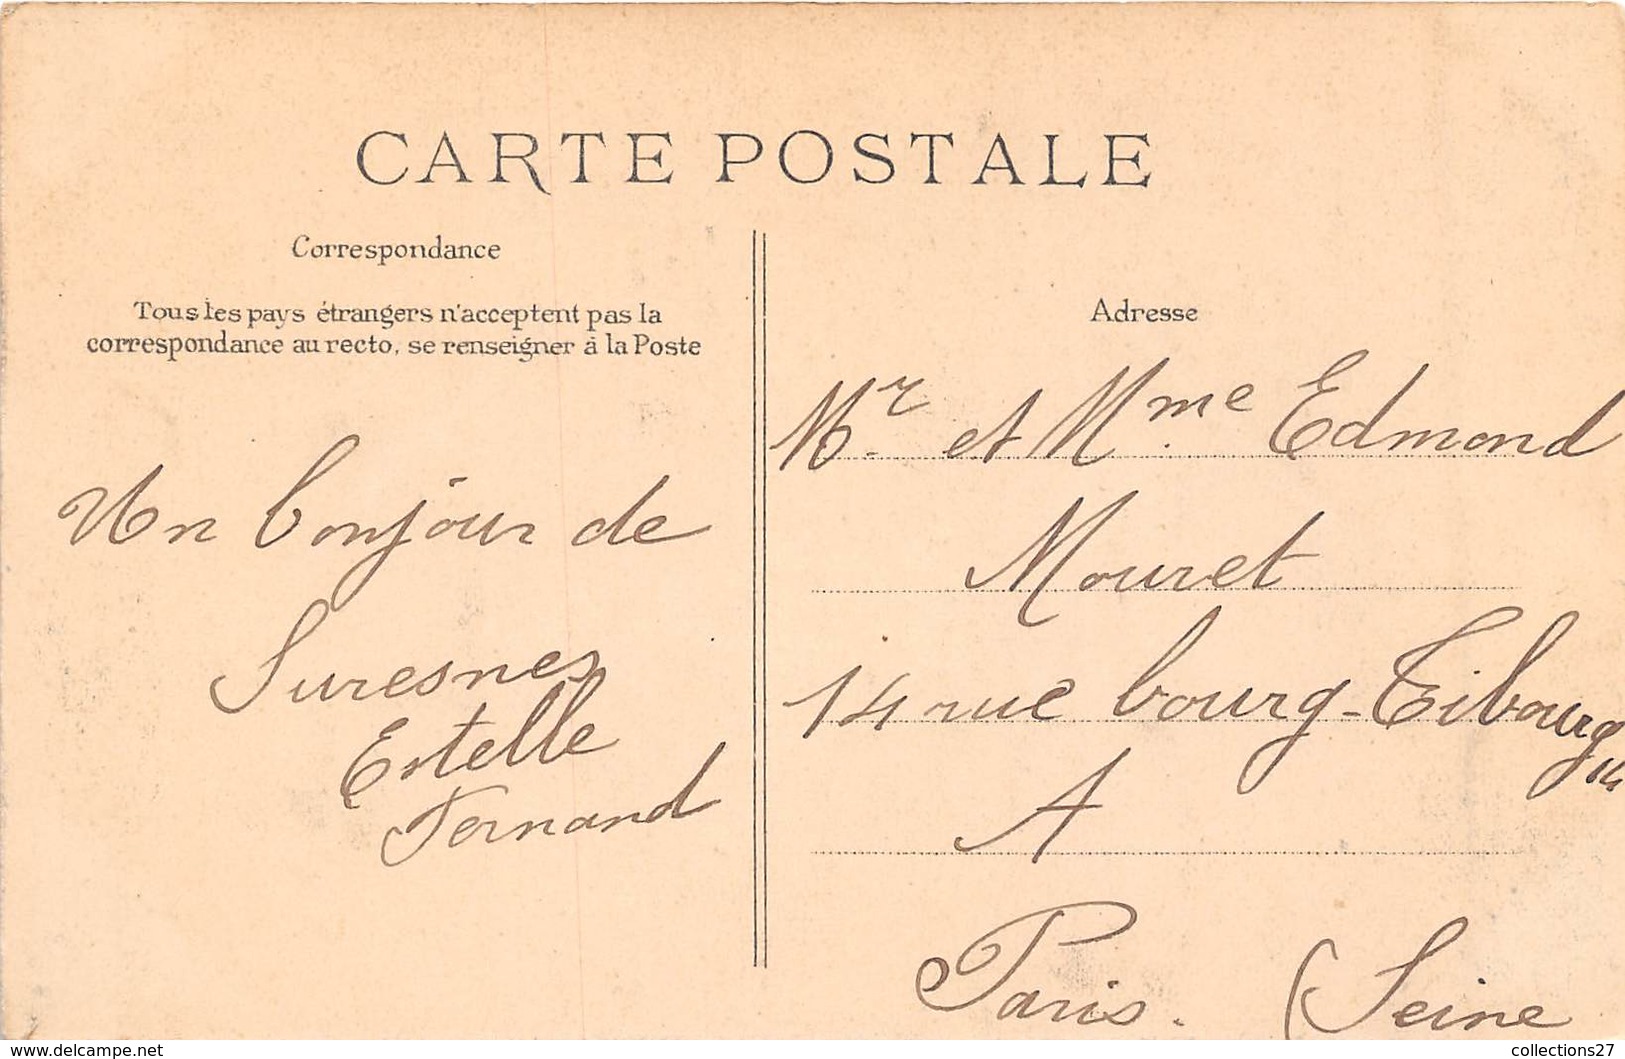 CARTE POSTALE
Correspondance
Tous les pays étrangers n'acceptent pas la
correspondance au recto, se renseigner à la Poste
Un bonjour de
Suresnes
Estelle
Fernand
Adresse
Mr. et Mme Edmond
Mouret
14 rue bourg-Tibourg
14
A
Paris. (Seine
www.delcampe.net
collections27